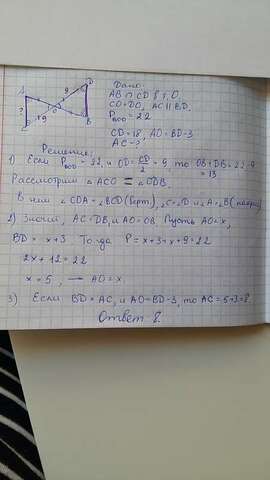 Дано:
AB ∩ CD в т. O.
CO = DO, AC || BD.
P BOD = 22
CD = 18, AO = BD - 3
AC - ?
Решение:
1) Если P BOD = 22, и OD = CD/2 = 9, то OB + DB = 22 - 9 = 13
Рассмотрим △ ACO = △ ODB.
2) Значит, AC = DB, и AO = OB. Пусть AO = x,
BD = x + 3 Тогда P = x + 3 + x + 9 = 22
2x + 12 = 22
x = 5, → AO = x.
3) Если BD = AC, и AO = BD - 3, то AC = 5 + 3 = 8.
Ответ: 8.